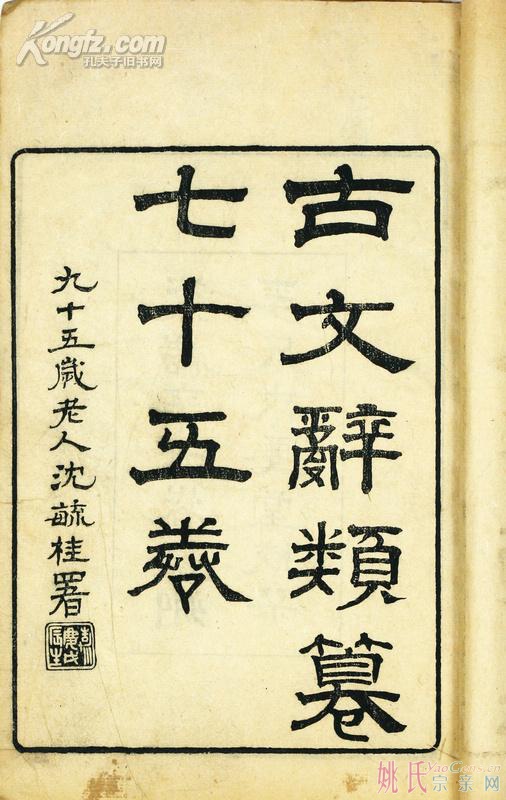 Kongfz.com
孔夫子旧书网
古文辭類篹
七十五卷
九十五歲老人沈毓桂署
姚氏
宗亲网